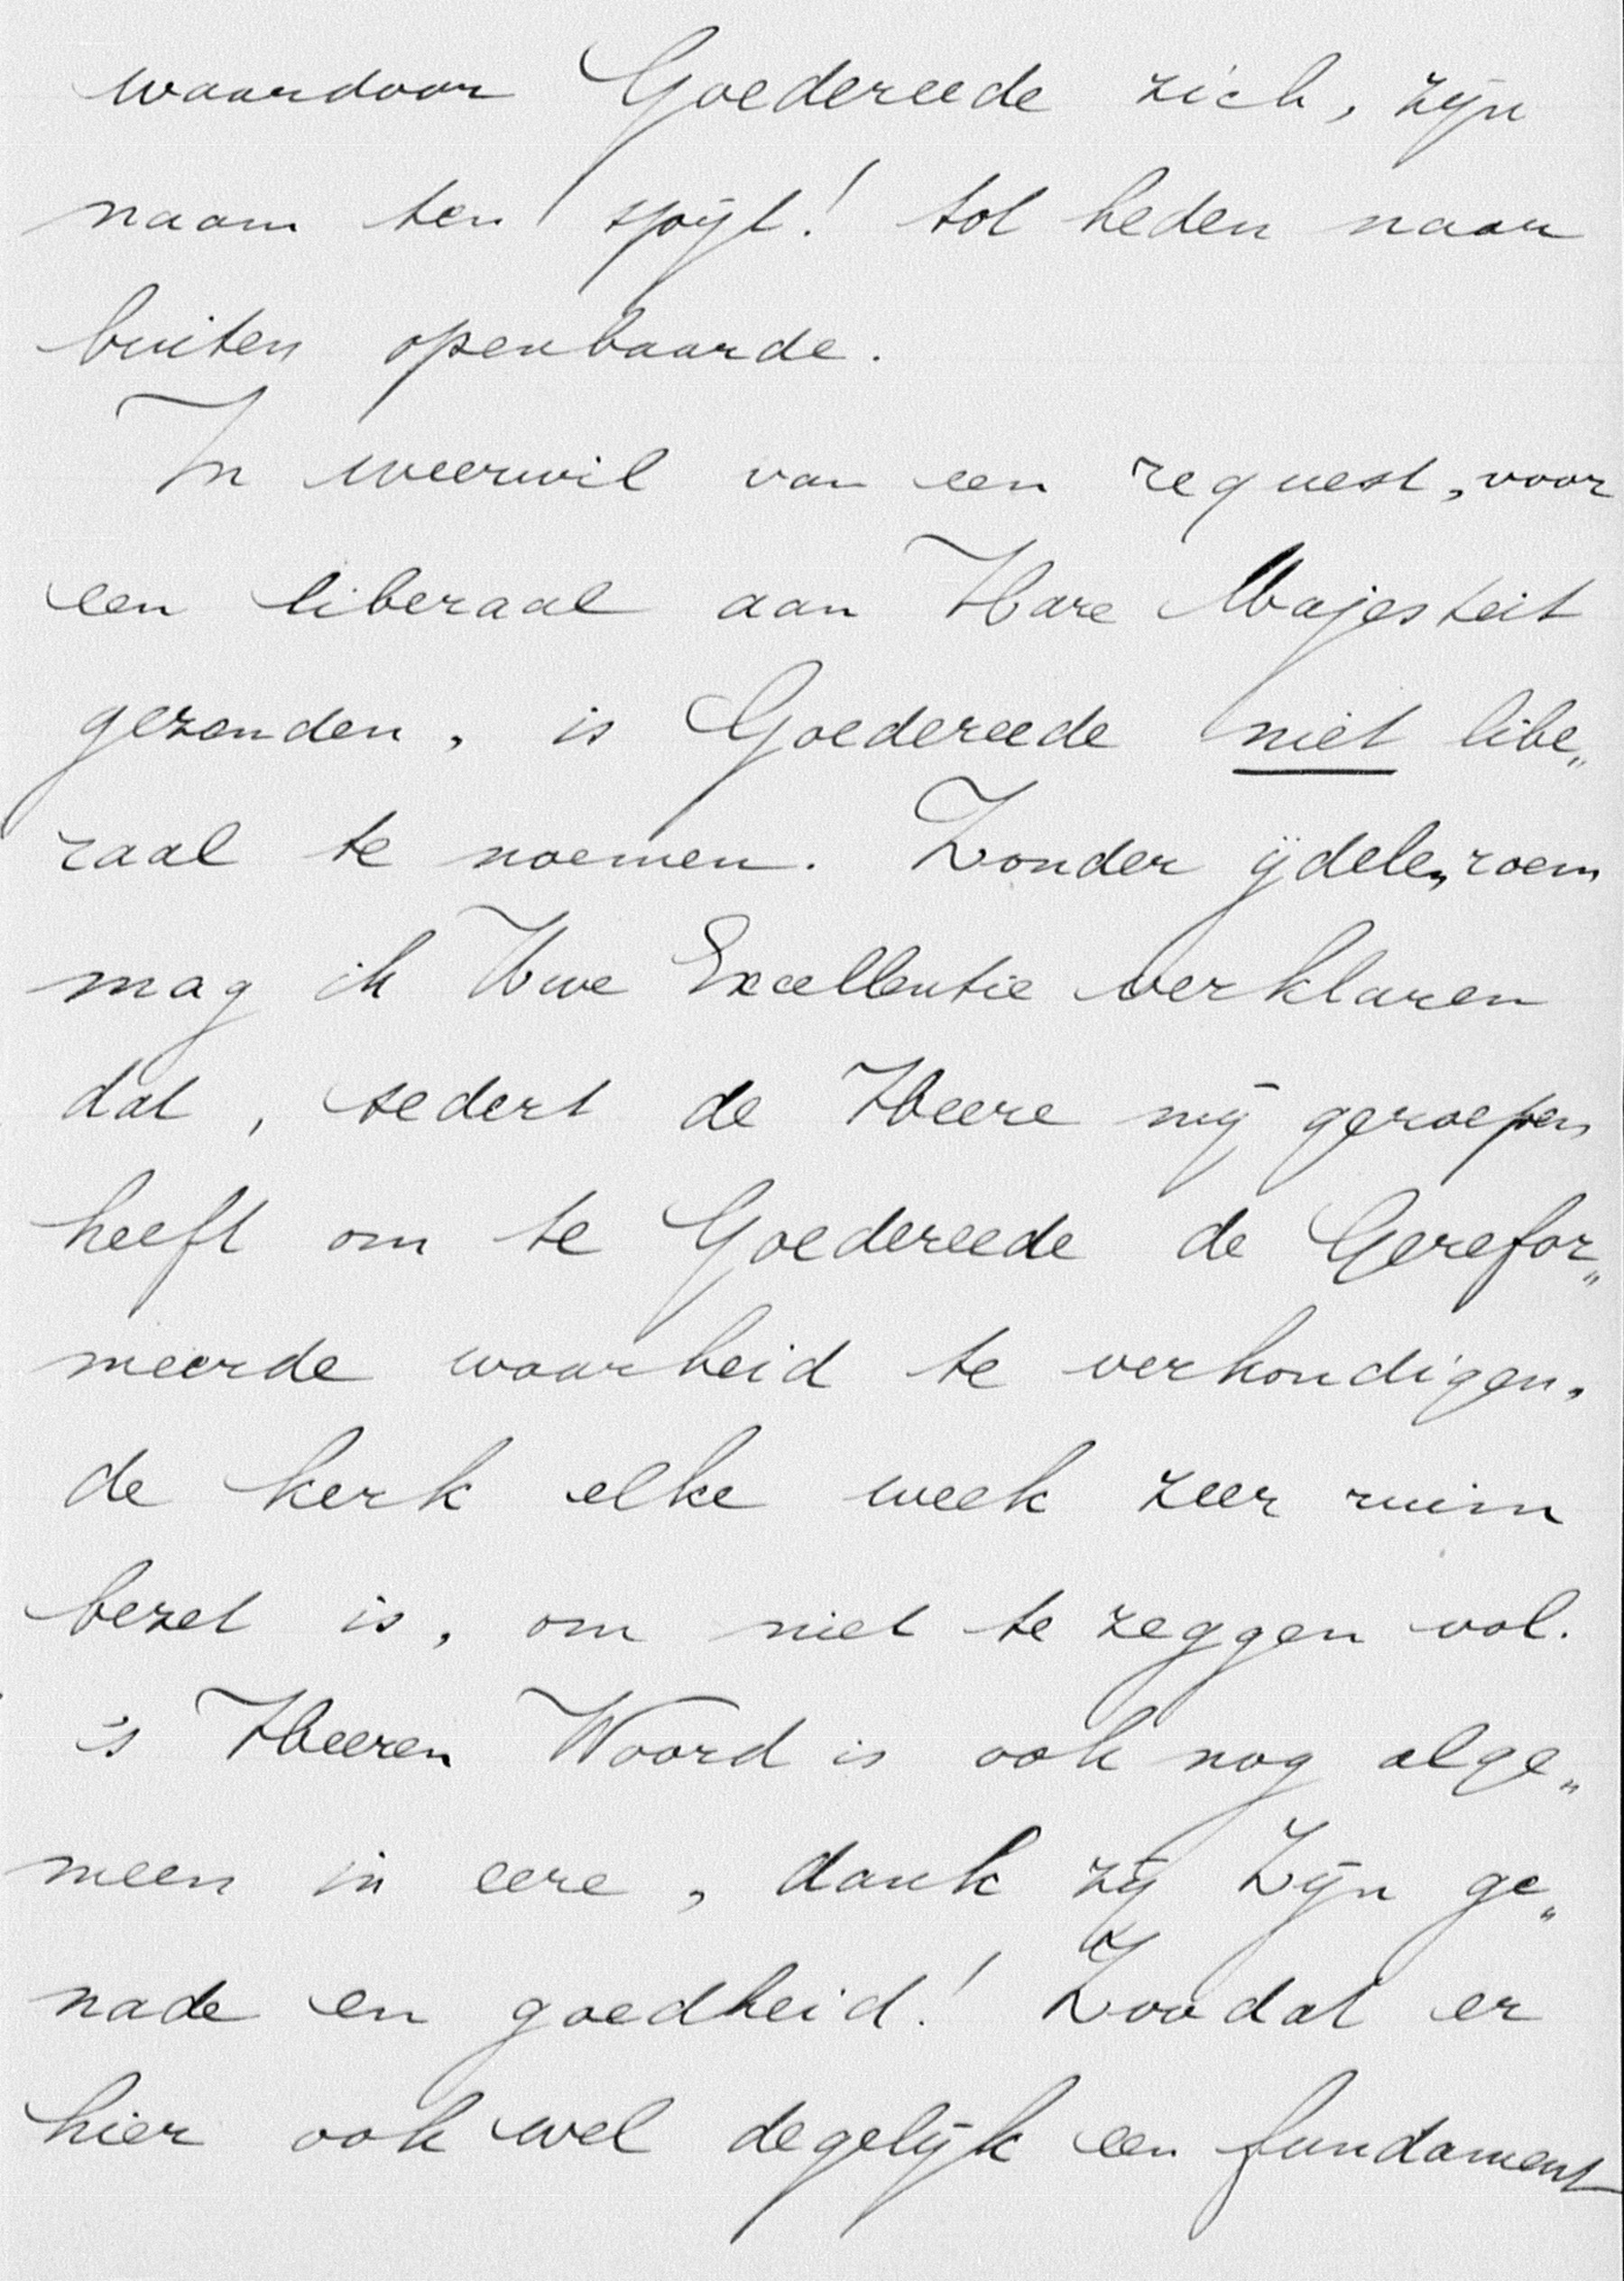 waardoor Goedereede zich, zijn
naam ten spijt! tot heden naar
buiten openbaarde.
In weerwil van een request, voor
een liberaal aan Hare Majesteit
gezonden, is Goedereede niet libe„
raal te noemen. Zonder ijdele„roem
mag ik Uwe Excellentie verklaren
dat, sedert de Heere mij geroepen
heeft om te Goedereede de Gerefor„
meerde waarheid te verkondigen,
de kerk elke week zeer ruim
bezet is, om niet te zeggen vol.
's Heeren Woord is ook nog alge„
meen in eere, dank zij Zijn ge„
nade en goedheid! Zoodat er
hier ook wel degelijk een fundament